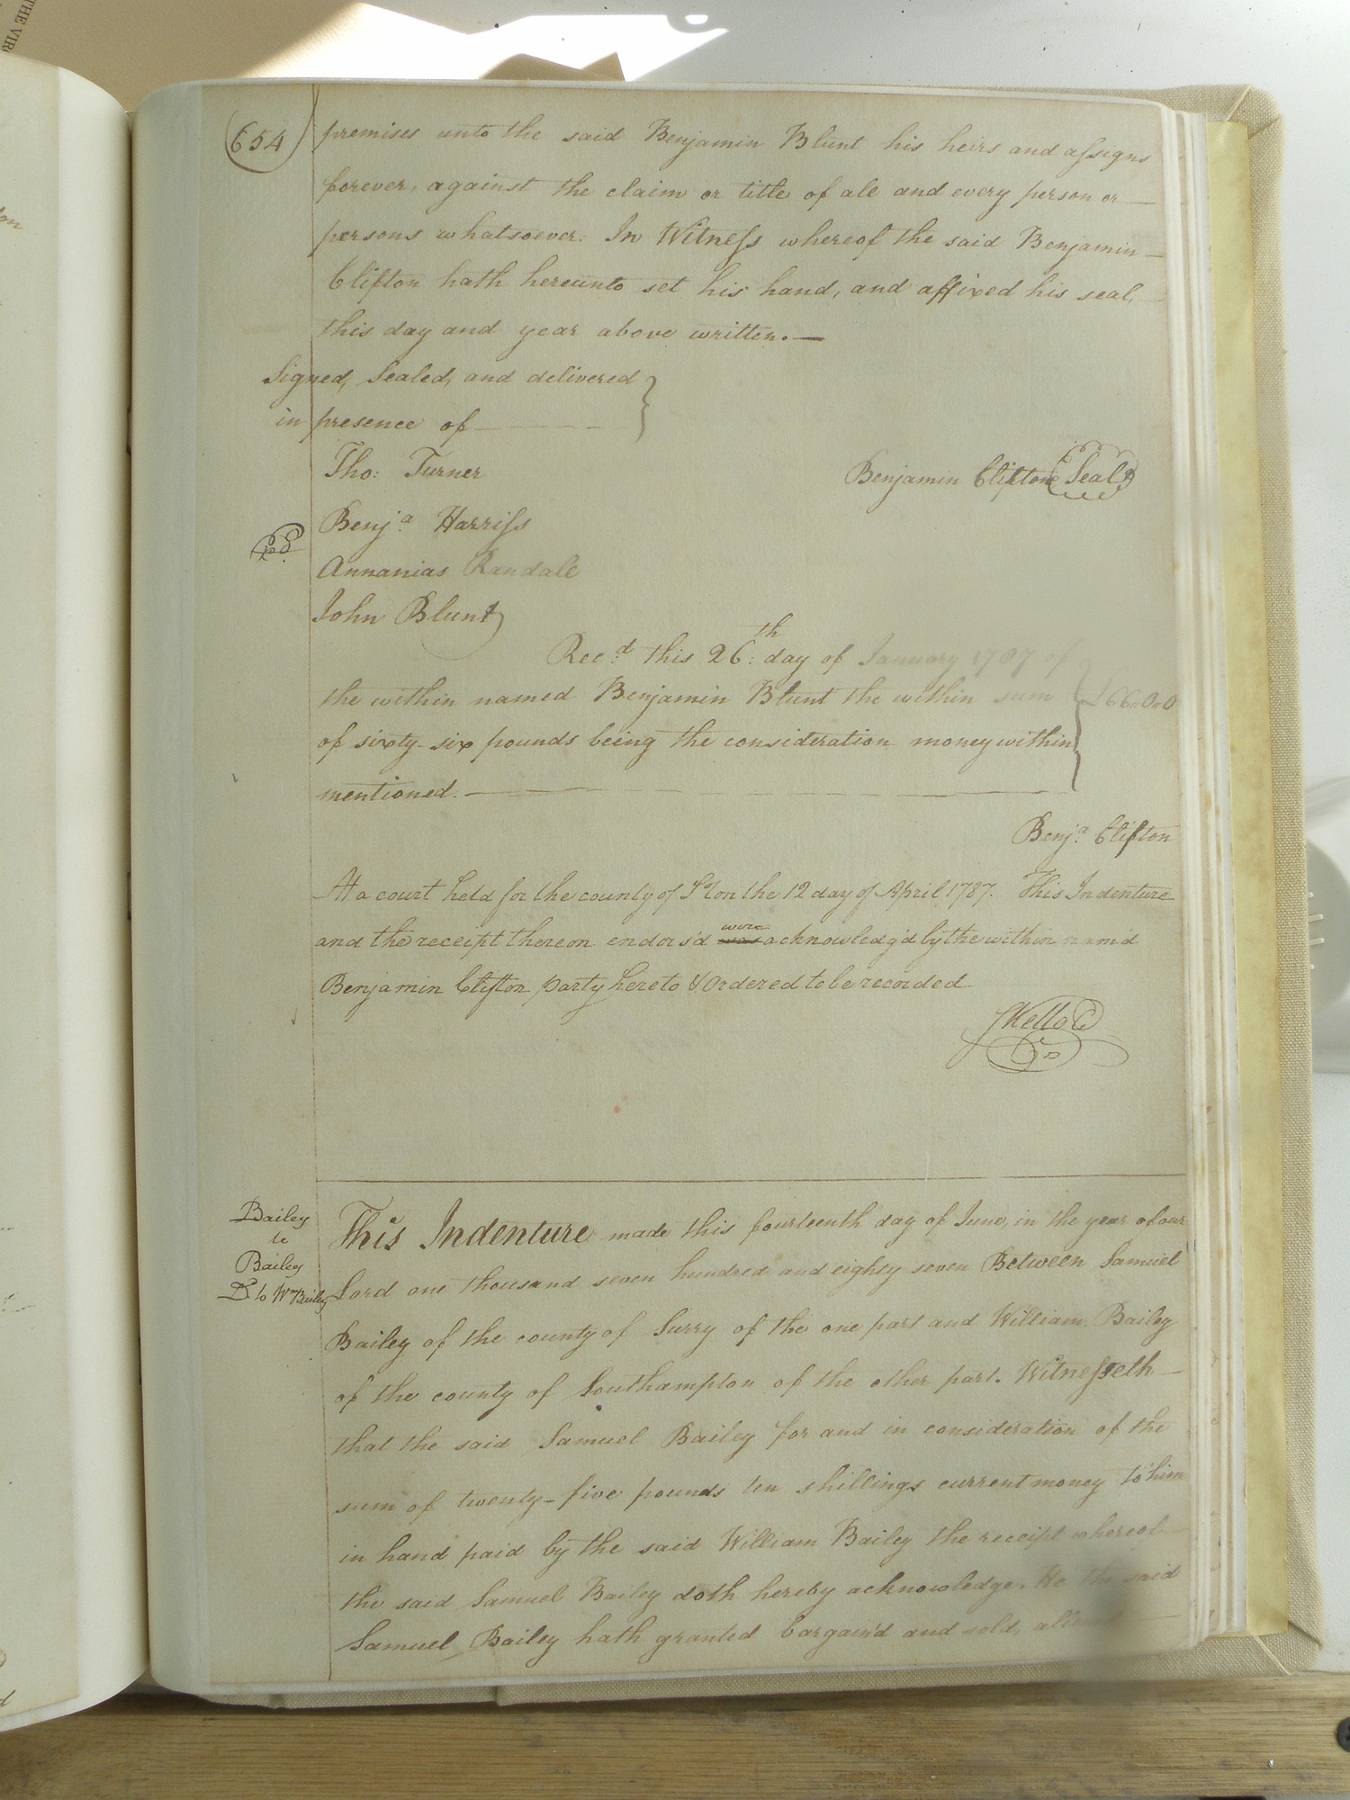 654
premises unto the said Benjamin Blunt his heirs and assigns
forever, against the claim or title of all and every person or
persons whatsoever. In Witness whereof the said Benjamin
Clifton hath hereunto set his hand, and affixed his seal,
this day and year above written.
Signed, Sealed, and delivered
in presence of
Tho: Turner
Benjamin Clifton Seal
Benja Harriss
Annanias Randall
John Blunt
Rec:d this 26th: day of January 1787 of
the within named Benjamin Blunt the within sum £66.0.0
of sixty-six pounds being the consideration money within
mentioned.
Benja Clifton
At a court held for the county of Sº ton the 12 day of April 1787. This Indenture
and the receipt thereon endors'd was were acknowledg'd by the within nam'd
Benjamin Clifton party hereto & Ordered to be recorded
Kello
Bailey
to
Bailey
Dd to Wm Bailey
This Indenture made this fourteenth day of June, in the year of our
Lord one thousand seven hundred and eighty seven Between Samuel
Bailey of the county of Surry of the one part and William Bailey
of the county of Southampton of the other part. Witnesseth
that the said Samuel Bailey for and in consideration of the
sum of twenty-five pounds ten shillings current money to him
in hand paid by the said William Bailey the receipt whereof
the said Samuel Bailey doth hereby acknowledge. He the said
Samuel Bailey hath granted bargain'd and sold,